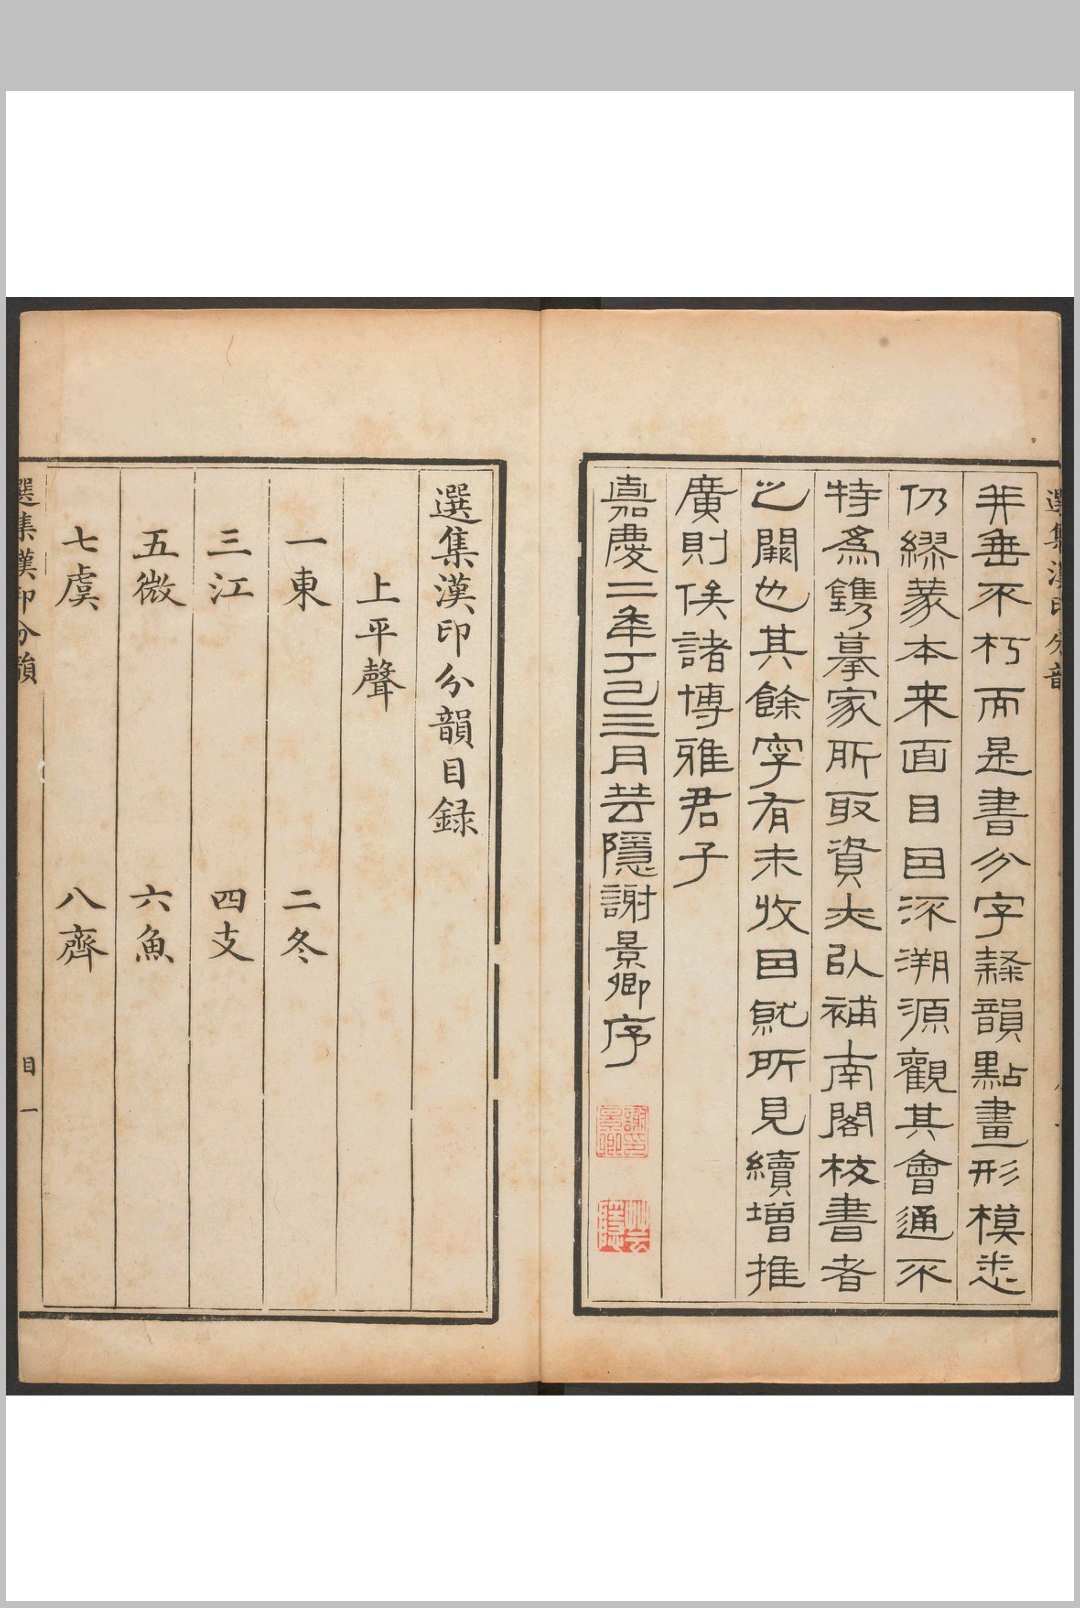 選集漢印分韻
並垂不朽而是書分字隸韻點畫形模悉
仍繆篆本来面目因流溯源觀其會通不
特為鐫摹家所取資夫以補南閣校書者
之闕也其餘字有未收因就所見續增推
廣則俟諸博雅君子
嘉慶二年丁巳三月芸隱謝景卿序
選集漢印分韻目録
上平聲
一東 二冬
三江 四支
五微 六魚
七虞 八齊
選集漢印分韻
目一